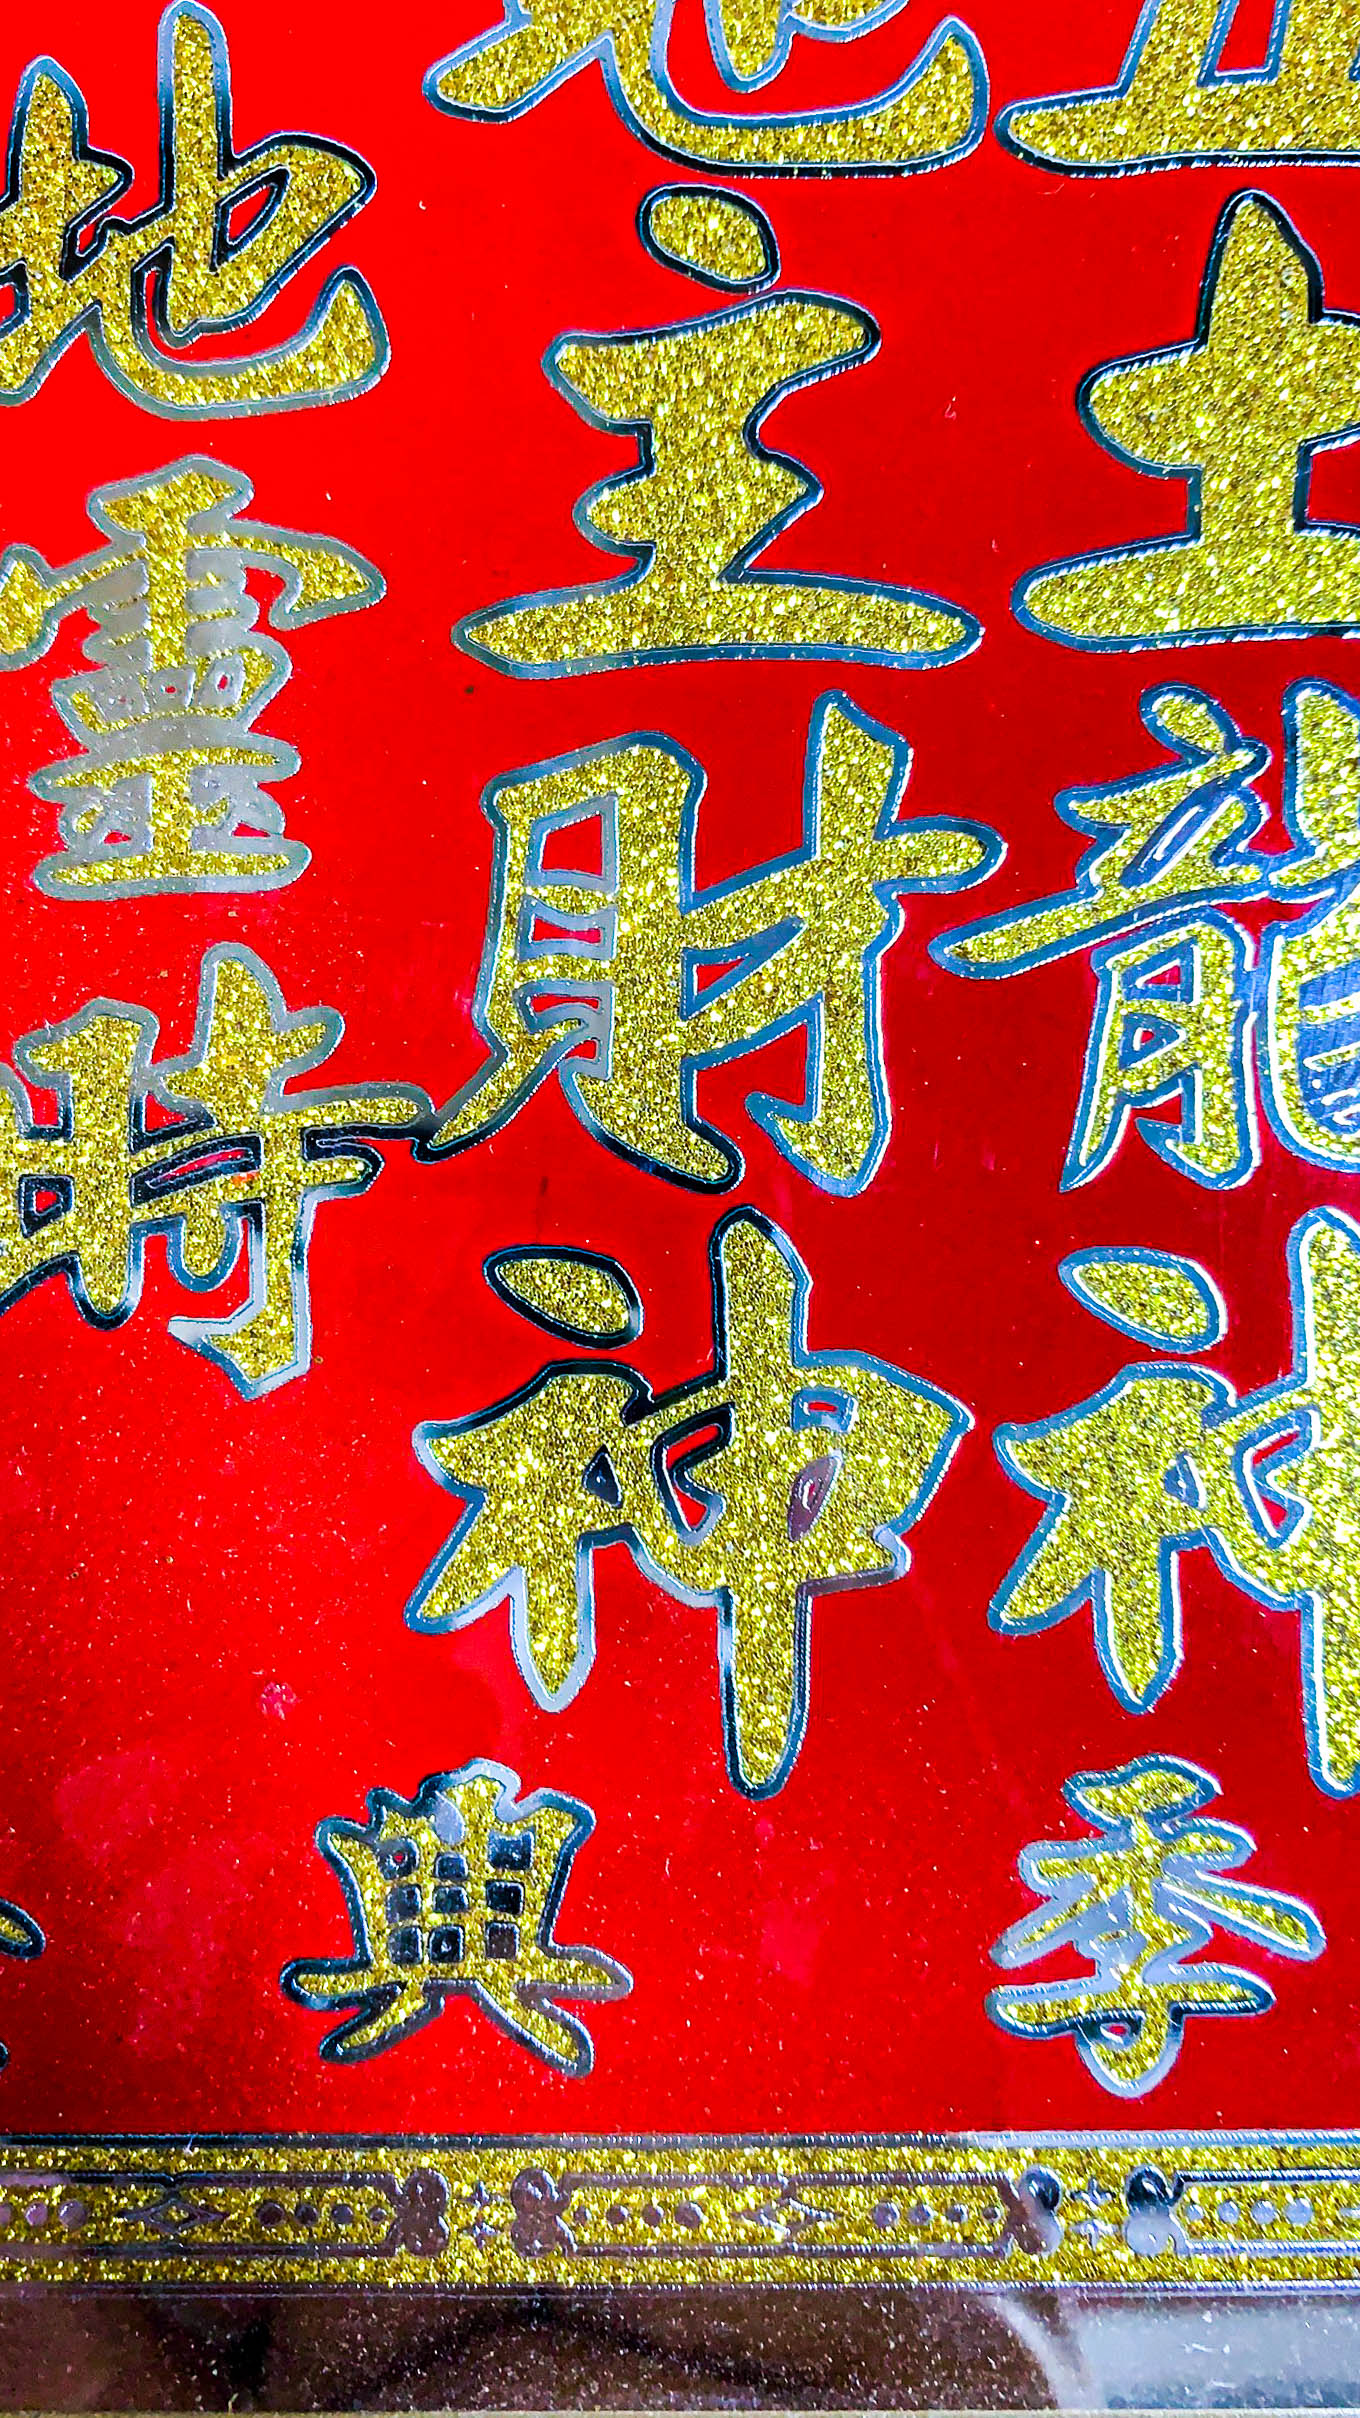 五土龍神
地主財神
地靈時
季興